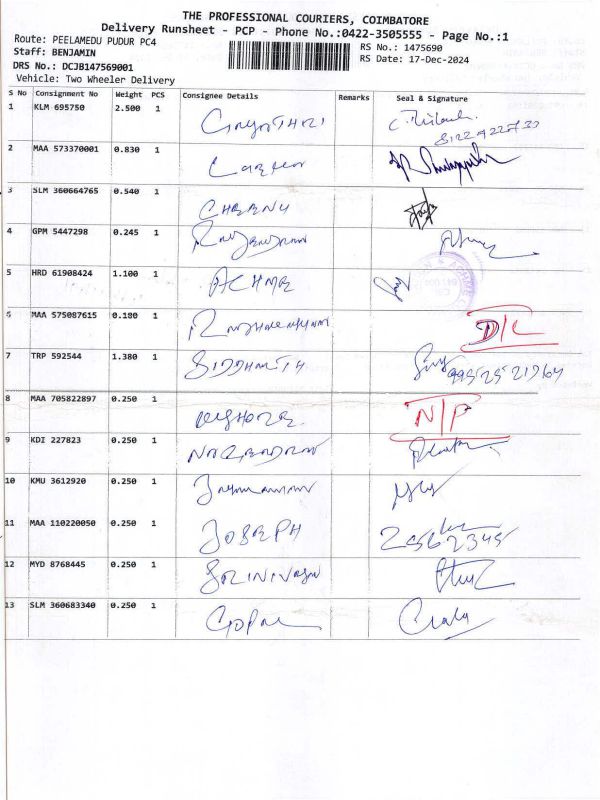 THE PROFESSIONAL COURIERS, COIMBATORE
Delivery Runsheet - PCP - Phone No.:0422-3505555 - Page No.:1
Route: PEELAMEDU PUDUR PC4 RS No.: 1475690
Staff: BENJAMIN RS Date: 17-Dec-2024
DRS No.: DCJB147569001
Vehicle: Two Wheeler Delivery
S No Consignment No Weight PCS Consignee Details Remarks Seal & Signature
1 KLM 695750 2.500 1 GAYATHRI
2 MAA 573370001 0.830 1
3 SLM 360664765 0.540 1 CHEENU
4 GPM 5447298 0.245 1
5 HRD 61908424 1.100 1 ACHME
6 MAA 575087615 0.180 1 D/L
7 TRP 592544 1.380 1 SIDDHARTH
8 MAA 705822897 0.250 1 KISHORE N/P
9 KDI 227823 0.250 1
10 KMU 3612920 0.250 1
11 MAA 110220050 0.250 1 JOSEPH
12 MYD 8768445 0.250 1 SRINIVASAN
13 SLM 360683340 0.250 1 GOPAL